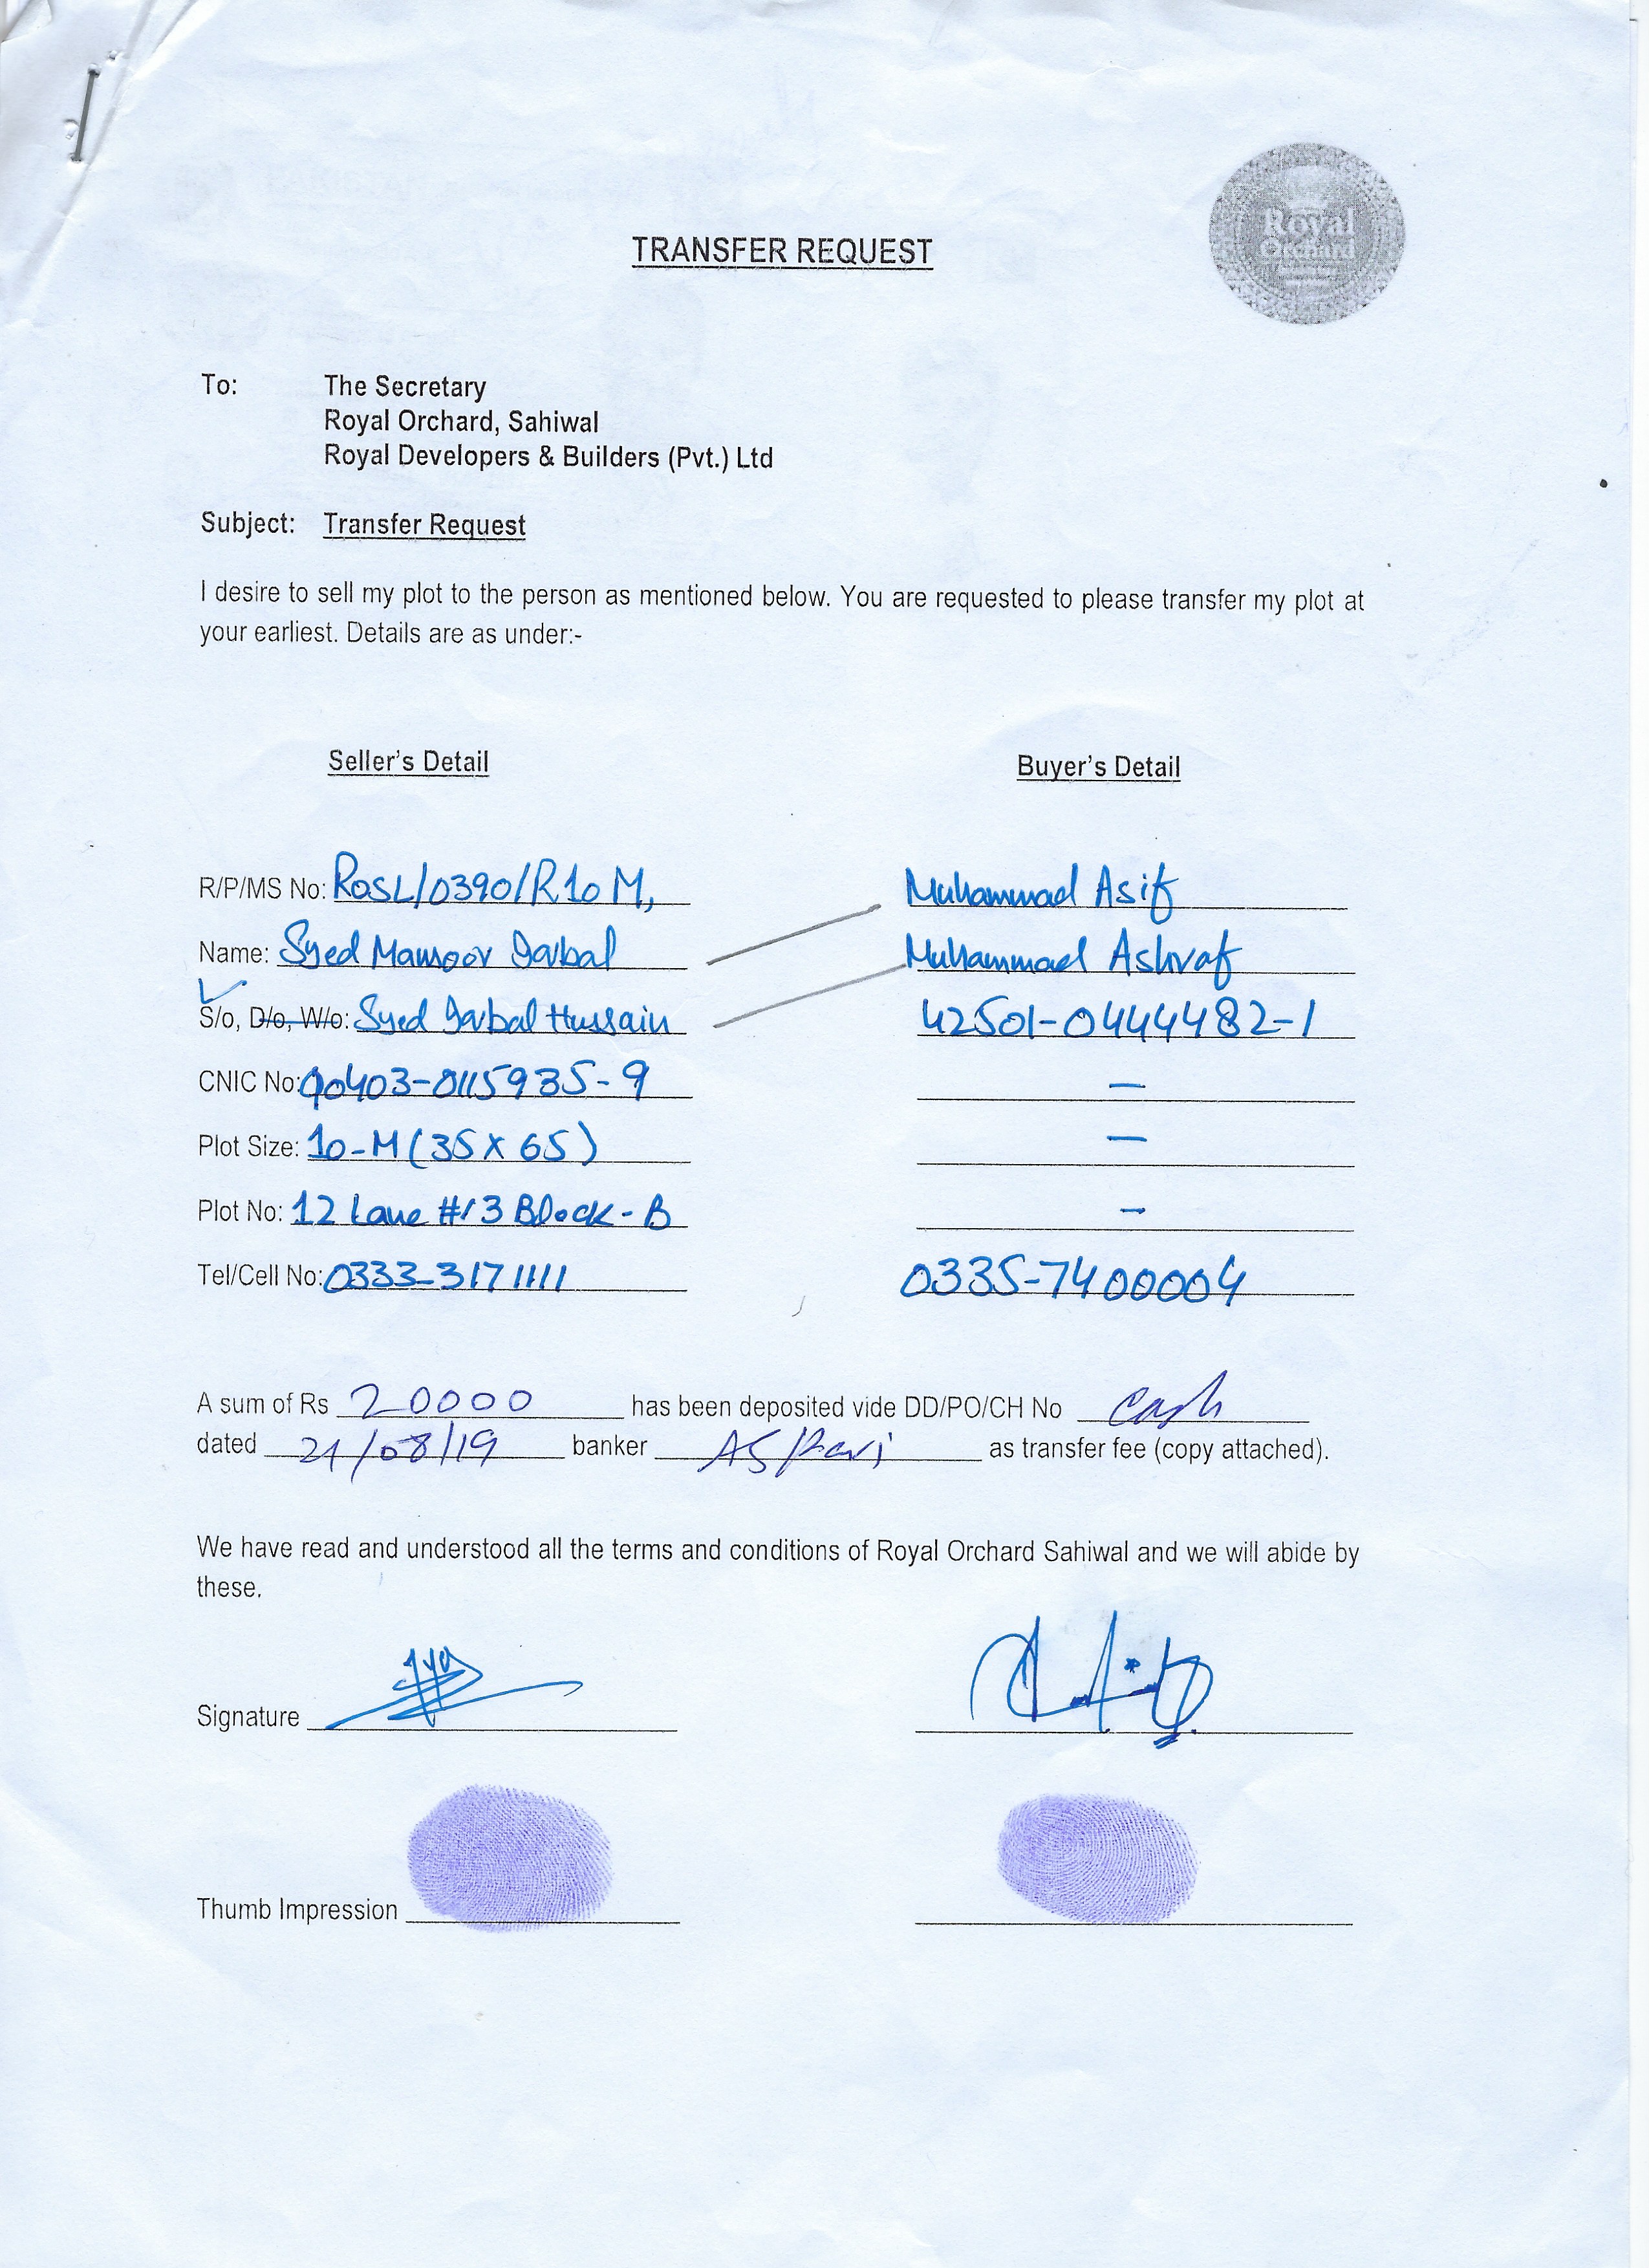 Royal
Orchard
TRANSFER REQUEST
To: The Secretary
Royal Orchard, Sahiwal
Royal Developers & Builders (Pvt.) Ltd
Subject: Transfer Request
I desire to sell my plot to the person as mentioned below. You are requested to please transfer my plot at
your earliest. Details are as under:-
Seller's Detail Buyer's Detail
R/P/MS No: ROSL/0390/R10M, Muhammad Asif
Name: Syed Mansoor Iqbal Muhammad Ashraf
S/o, D/o, W/o: Syed Iqbal Hussain 42501-0444482-1
CNIC No: 00403-0115935-9 —
Plot Size: 10-M (35 X 65) —
Plot No: 12 Lane #13 Block-B —
Tel/Cell No: 0333-3171111 0335-7400004
A sum of Rs 20000 has been deposited vide DD/PO/CH No cash
dated 21/08/19 banker Askari as transfer fee (copy attached).
We have read and understood all the terms and conditions of Royal Orchard Sahiwal and we will abide by
these.
Signature
Thumb Impression